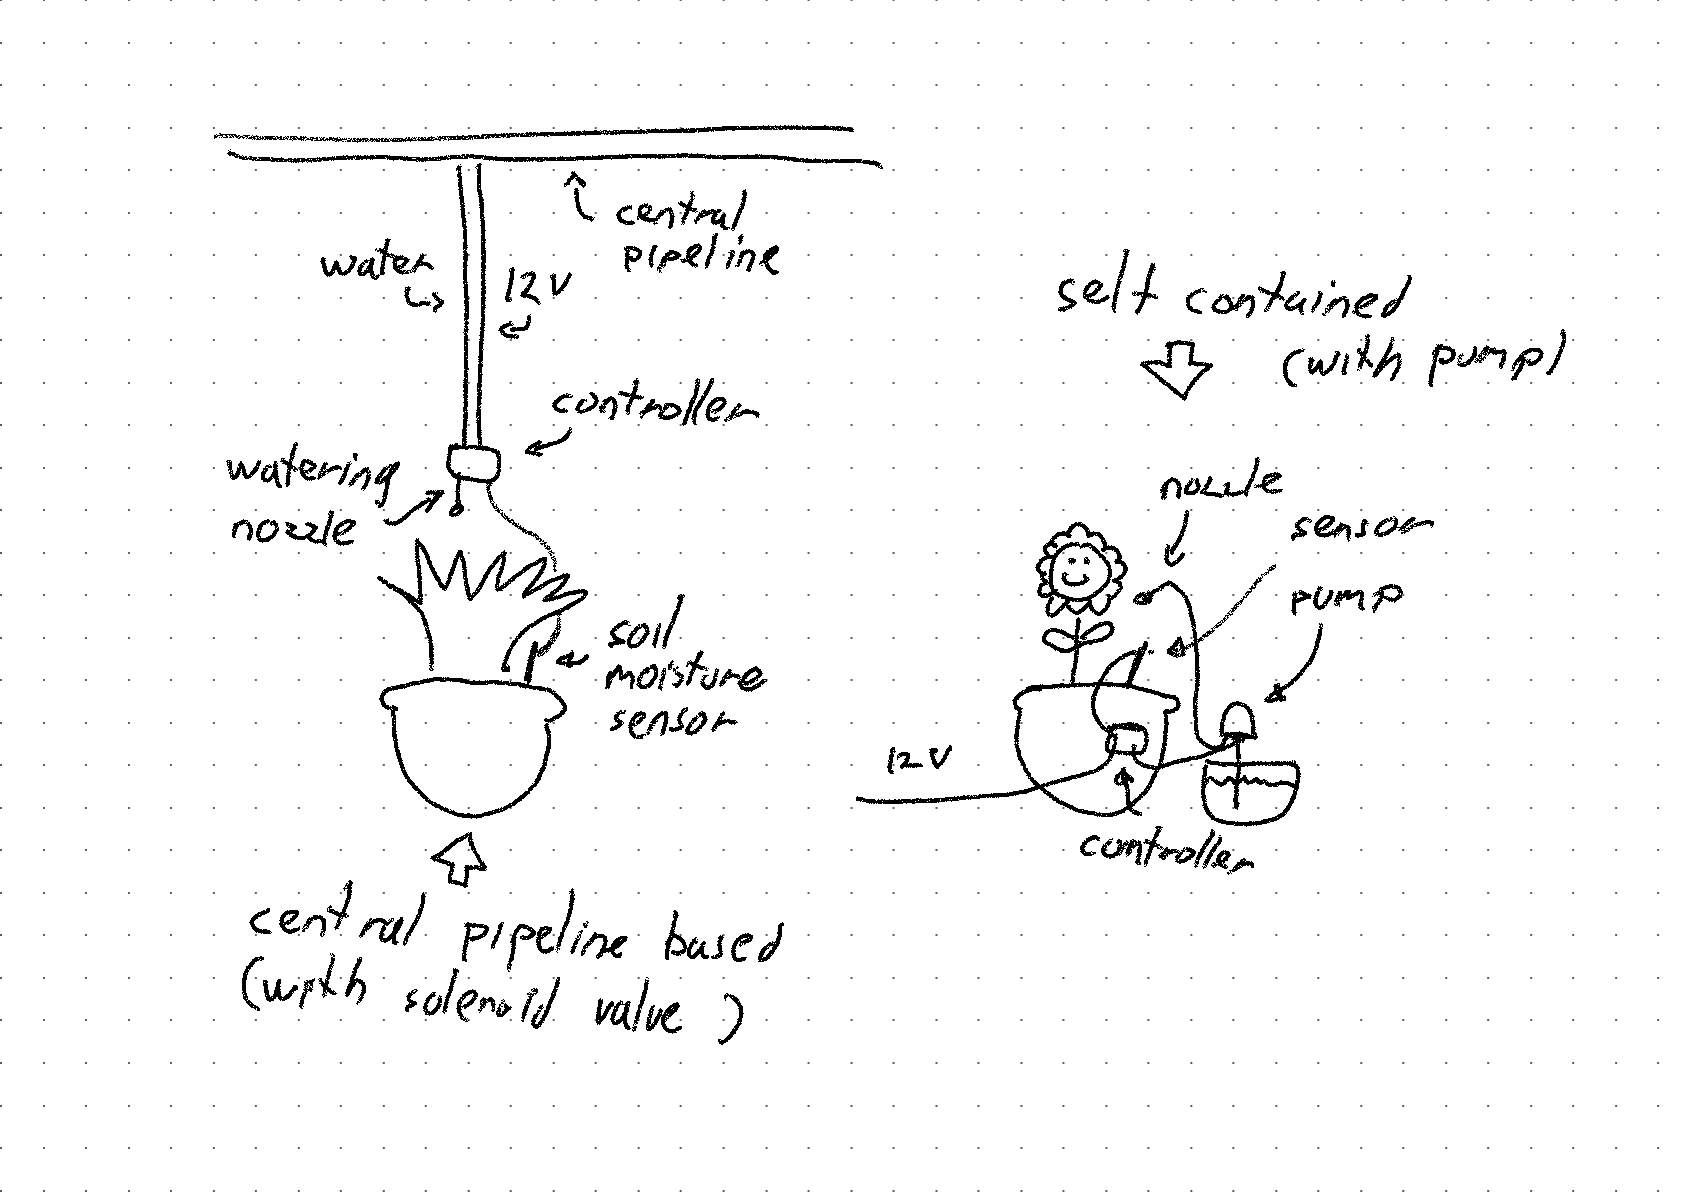 central
pipeline
water
12V
controller
watering
nozzle
soil
moisture
sensor
central pipeline based
(with solenoid valve)
self contained
(with pump)
nozzle
sensor
pump
12V
controller